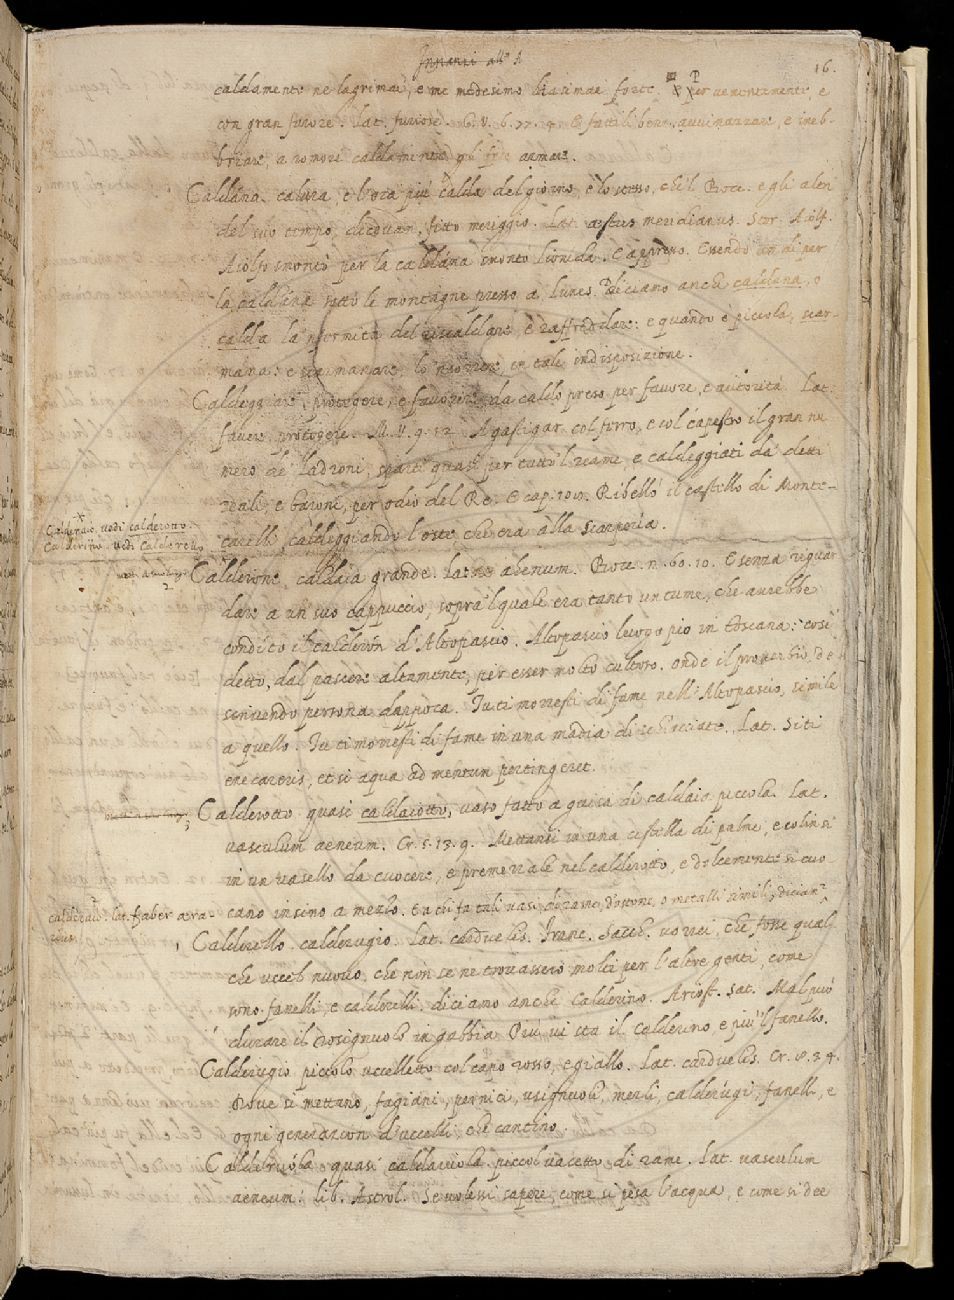 Innanzi all' A
16.
caldamente ne lagrimai, e me medesimo biasimai forte. P Per vementemente, e
con gran furore. Lat. furiose. G. V. 6. 77. 4. E fattili bene avvinazzare, e ineb-
briare a romore caldamente gli fece armare.
Caldana. caldura, e l'ora più calda del giorno, è lo stesso, che'l Bocc. e gli altri
del suo tempo, dicevan, fitto meriggio. Lat. æstus meridianus. Stor. Aiolf.
Aiolfo smontò per la caldana smontò Lionida. E appresso. Essendo un dì per
la caldana sotto le montagne presso a Lunes. Diciamo anche caldana, o
calda la nfermità del riscaldare, e raffreddare: e quando è piccola, scar-
mana: e scarmanare, lo ncorrere in tale indisposizione.
Caldeggiare. proteggere, e favorire da caldo preso per favore, e autorità. Lat.
favere, protegere. M. V. 9. 52. A gastigar col ferro, e col capestro il gran nu
mero de' ladroni, sparti quasi per tutto'l reame, e caldeggiati da' detti
reali, e baroni, per odio del Re. E cap. 109. Ribellò il castello di Monte-
carelli caldeggiando l'oste, che era alla Scarperia.
Calderaio. vedi calderotto.
Calderino. vedi Calderello
Calderone. caldaia grande. Lat. ahenum. Bocc. n. 60. 10. E senza riguar
2
dare a un suo cappuccio, sopra'l quale era tanto untume, che avrebbe
condito il calderon d'Altopascio. Altopascio luogo pio in Toscana: così
detto, dal pascere altamente, per esser molto cultoso. onde il proverbio, de-
scrivendo persona dappoca. Tu ti morresti di fame nell'Altopascio, simile
a quello. Tu ti morresti di fame in una madia di schiacciate. Lat. Siti
enecareris, et si aqua ad mentum pertingeret.
Calderotto quasi caldaiotto, vaso fatto a guisa di caldaia piccola. Lat.
3
vasculum aeneum. Cr. 5. 13. 9. Mettansi in una cestella di palme, e colinsi
in un vasello da cuocere, e premerale nel calderotto, e dolcemente si cuo-
cano insino a mezzo. E a chi fa tali vasi, di rame, d'ottone, o metalli simili, dician
calderaio. lat. faber æra-
rius.
1 Calderello. calderugio. Lat. carduelis. Franc. Sacch. vo voi, che fosse qual
che uccel nuovo, che non se ne trovassero molti per l'altre genti, come
sono fanelli, e calderelli. diciamo anche Calderino. Ariost. Sat. Mal può
durare il Rosignuolo in gabbia Più vi sta il calderino, e più'l fanello.
Calderugio piccolo uccelletto col capo rosso, e giallo. Lat. carduelis. Cr. 9. 94.
Dove si mettano, fagiani, pernici, usignuoli, merli, calderugi, fanelli, e
ogni generazion d'uccelli che cantino.
Calderuola quasi caldaiuola. piccol vasetto di rame. Lat. vasculum
aeneum. lib. Astrol. Se volessi sapere, come si pesa l'acqua, e come si dee